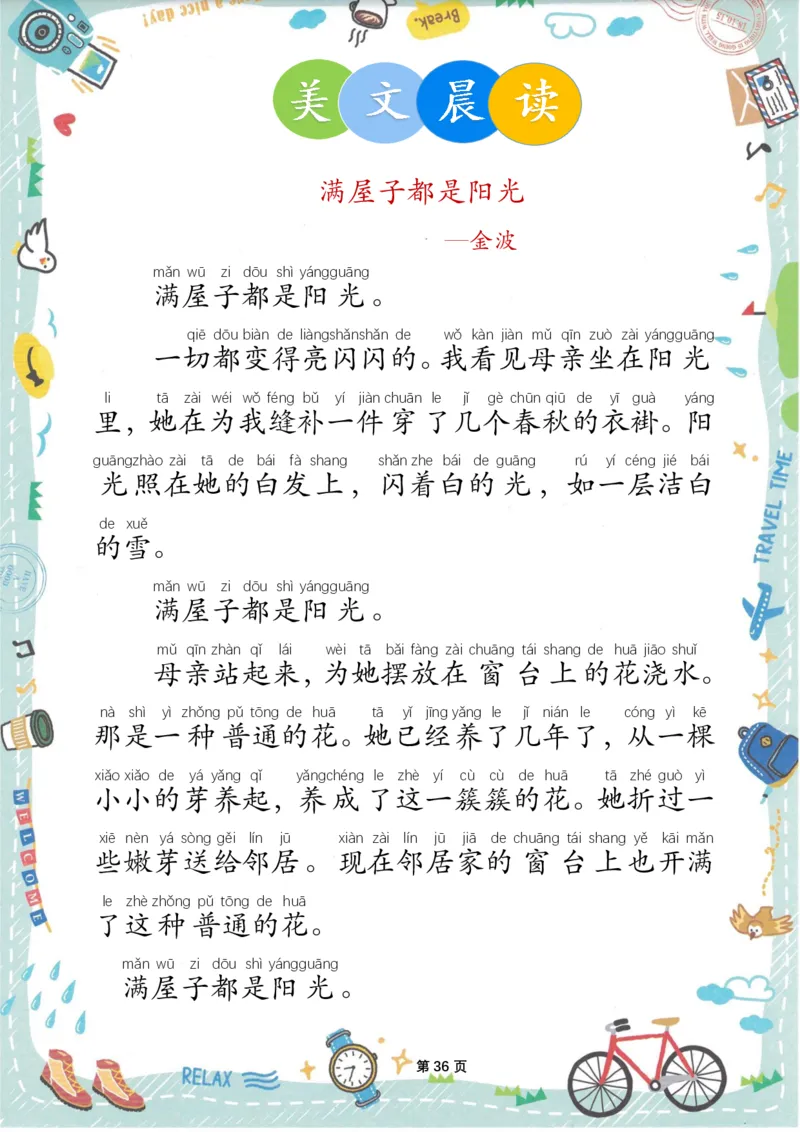 Have a nice day!
Break.
美文晨读
满屋子都是阳光
—金波
mǎn wū zi dōu shì yángguāng
满屋子都是阳光。
qiē dōu biàn de liàngshǎnshǎn de wǒ kàn jiàn mǔ qīn zuò zài yángguāng
一切都变得亮闪闪的。我看见母亲坐在阳光
li tā zài wéi wǒ féng bǔ yí jiàn chuān le jǐ gè chūn qiū de yī guà yáng
里，她在为我缝补一件穿了几个春秋的衣褂。阳
guāngzhào zài tā de bái fà shang shǎn zhe bái de guāng rú yí céng jié bái
光照在她的白发上，闪着白的光，如一层洁白
de xuě
的雪。
mǎn wū zi dōu shì yángguāng
满屋子都是阳光。
mǔ qīn zhàn qǐ lái wèi tā bǎi fàng zài chuāng tái shang de huā jiāo shuǐ
母亲站起来，为她摆放在窗台上的花浇水。
nà shì yì zhǒng pǔ tōng de huā tā yǐ jīng yǎng le jǐ nián le cóng yì kē
那是一种普通的花。她已经养了几年了，从一棵
xiǎo xiǎo de yá yǎng qǐ yǎngchéng le zhè yí cù cù de huā tā zhé guò yì
小小的芽养起，养成了这一簇簇的花。她折过一
xiē nèn yá sòng gěi lín jū xiàn zài lín jū jiā de chuāng tái shang yě kāi mǎn
些嫩芽送给邻居。现在邻居家的窗台上也开满
le zhè zhǒng pǔ tōng de huā
了这种普通的花。
mǎn wū zi dōu shì yángguāng
满屋子都是阳光。
TRAVEL TIME
WELCOME
RELAX
第 36 页